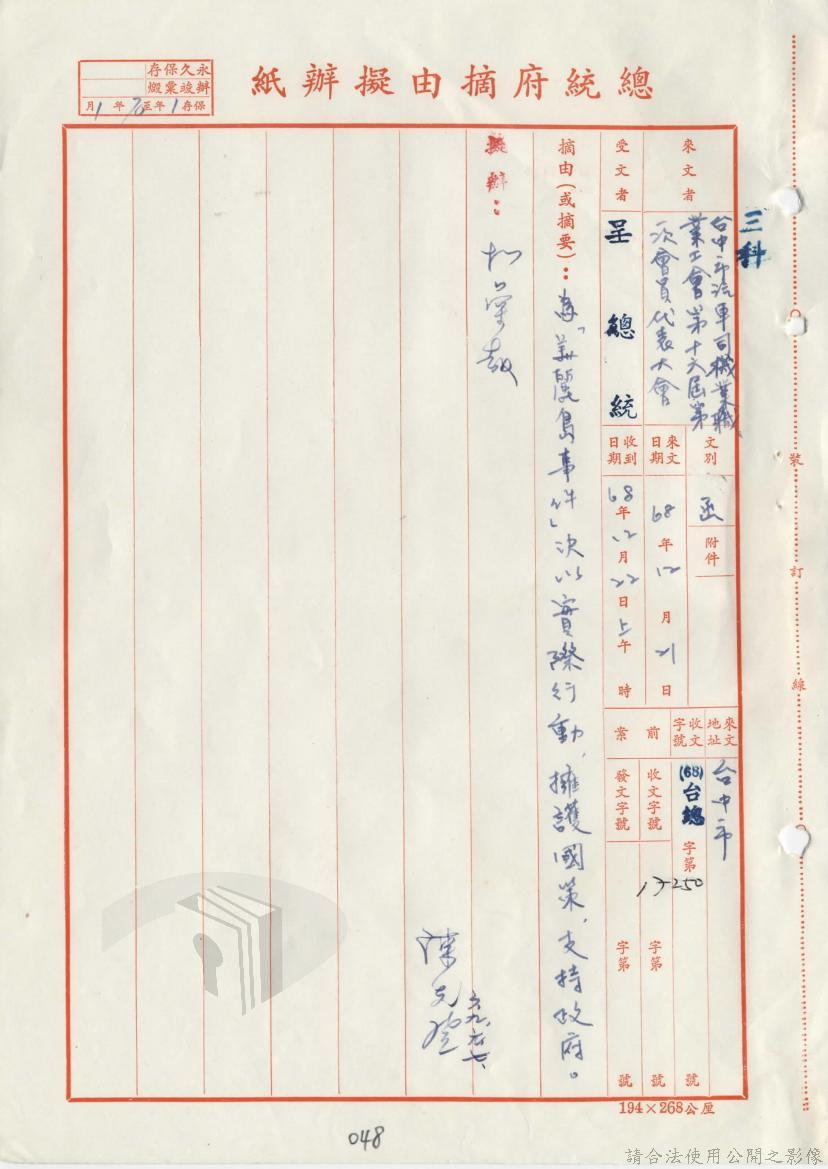 總統府摘由擬辦紙
永久保存
辦竣彙燬
保存1年至70年1月
三科
來文者
台中市汽車司機業職
業工會第十六屆第
次會員代表大會
受文者
呈總統
文別
函
附件
來文日期
68年12月21日
收到日期
68年12月22日上午時
來文地址
台中市
收文字號
(68)台總字第
13250
號
前案
收文字號
字第
號
發文字號
字第
號
摘由(或摘要):為「美麗島事件」決以實際行動,擁護國策,支持政府。
擬辦:
陳
裝訂線
194×268公厘
048
請合法使用公開之影像